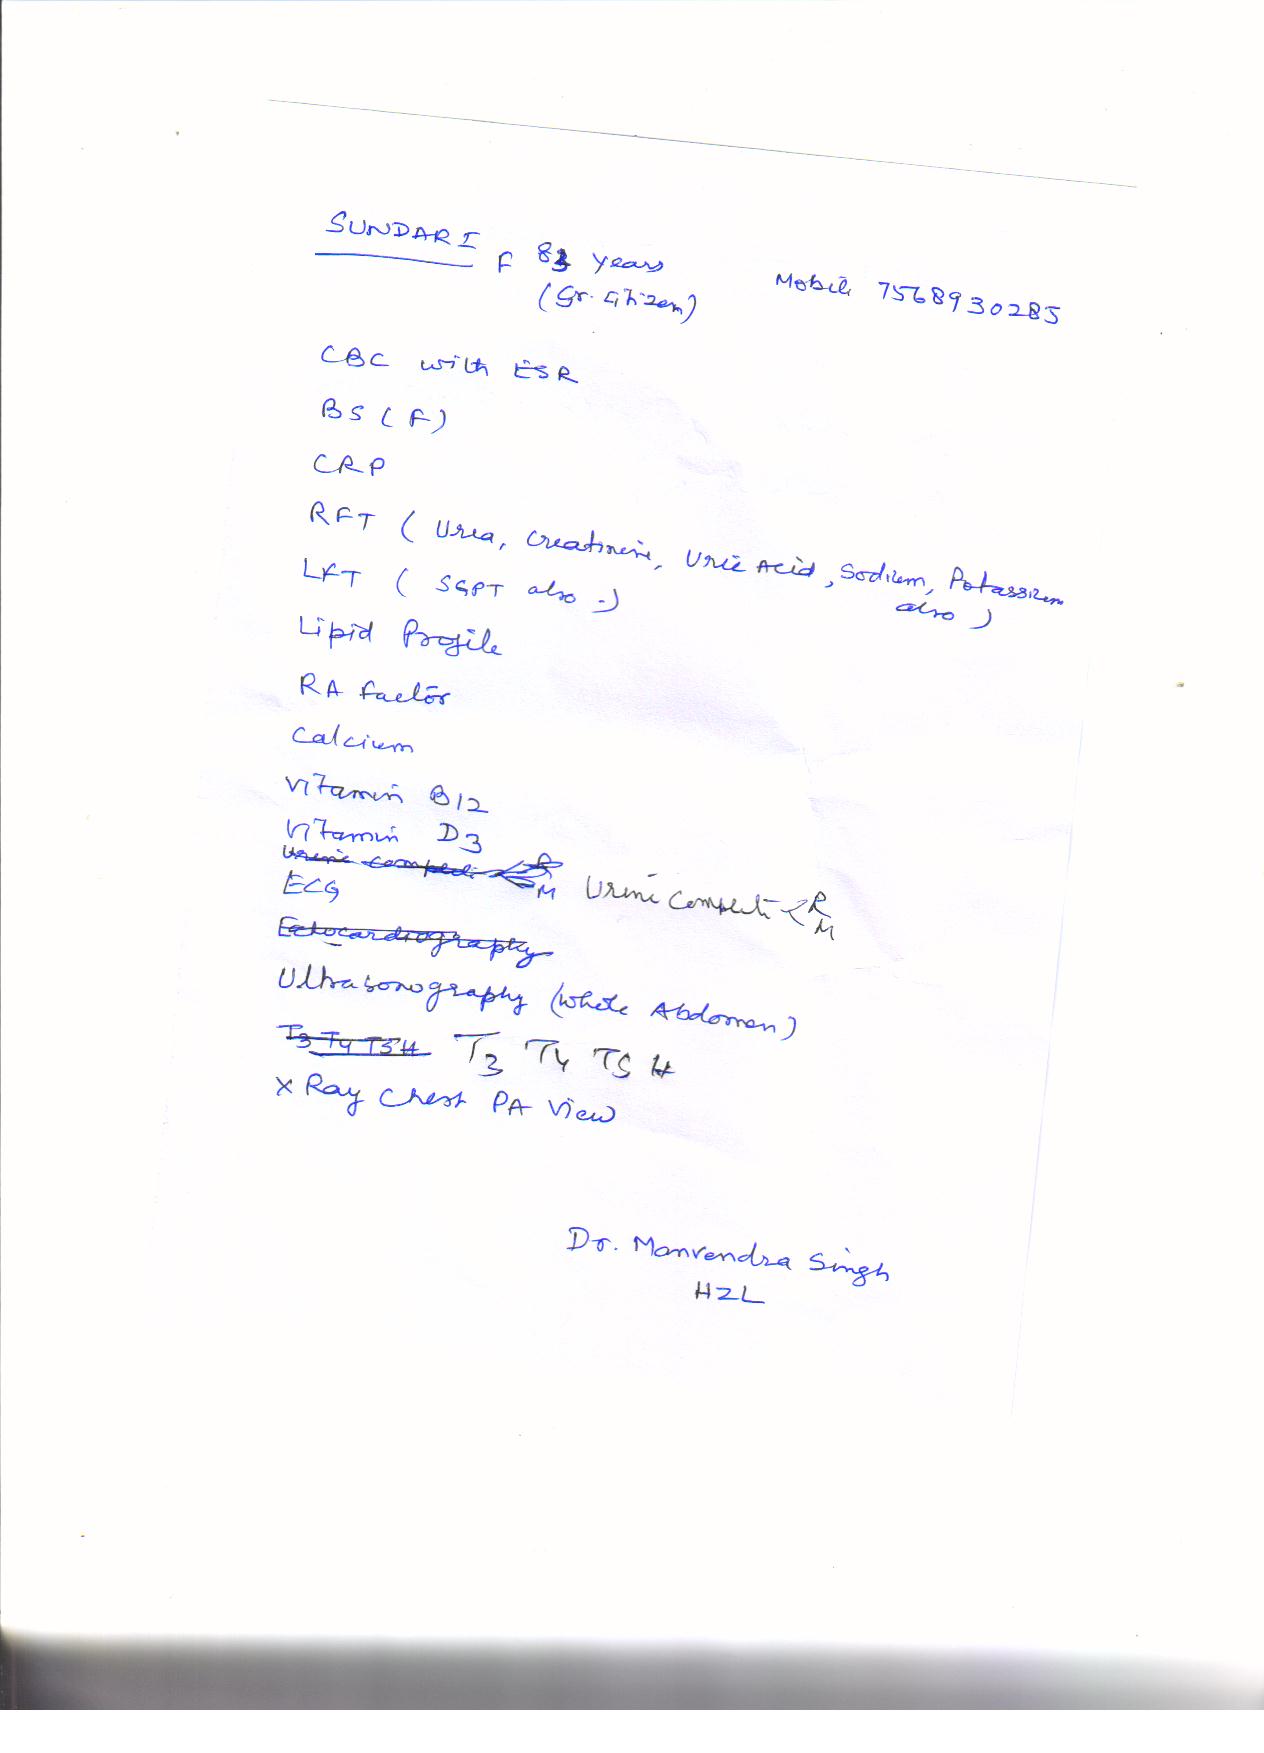 SUNDARI F 83 years Mobile 7568930285
(Sr. Citizen)
CBC with ESR
BS (F)
CRP
RFT ( Urea, Creatinine, Uric Acid, Sodium, Potassium
also )
LFT ( SGPT also -)
Lipid Profile
RA factor
Calcium
Vitamin B12
Vitamin D3
Urine Complete R
M
ECG
Ultrasonography (Whole Abdomen)
T3 T4 TSH T3 T4 TSH
X Ray Chest PA View
Dr. Manvendra Singh
HZL